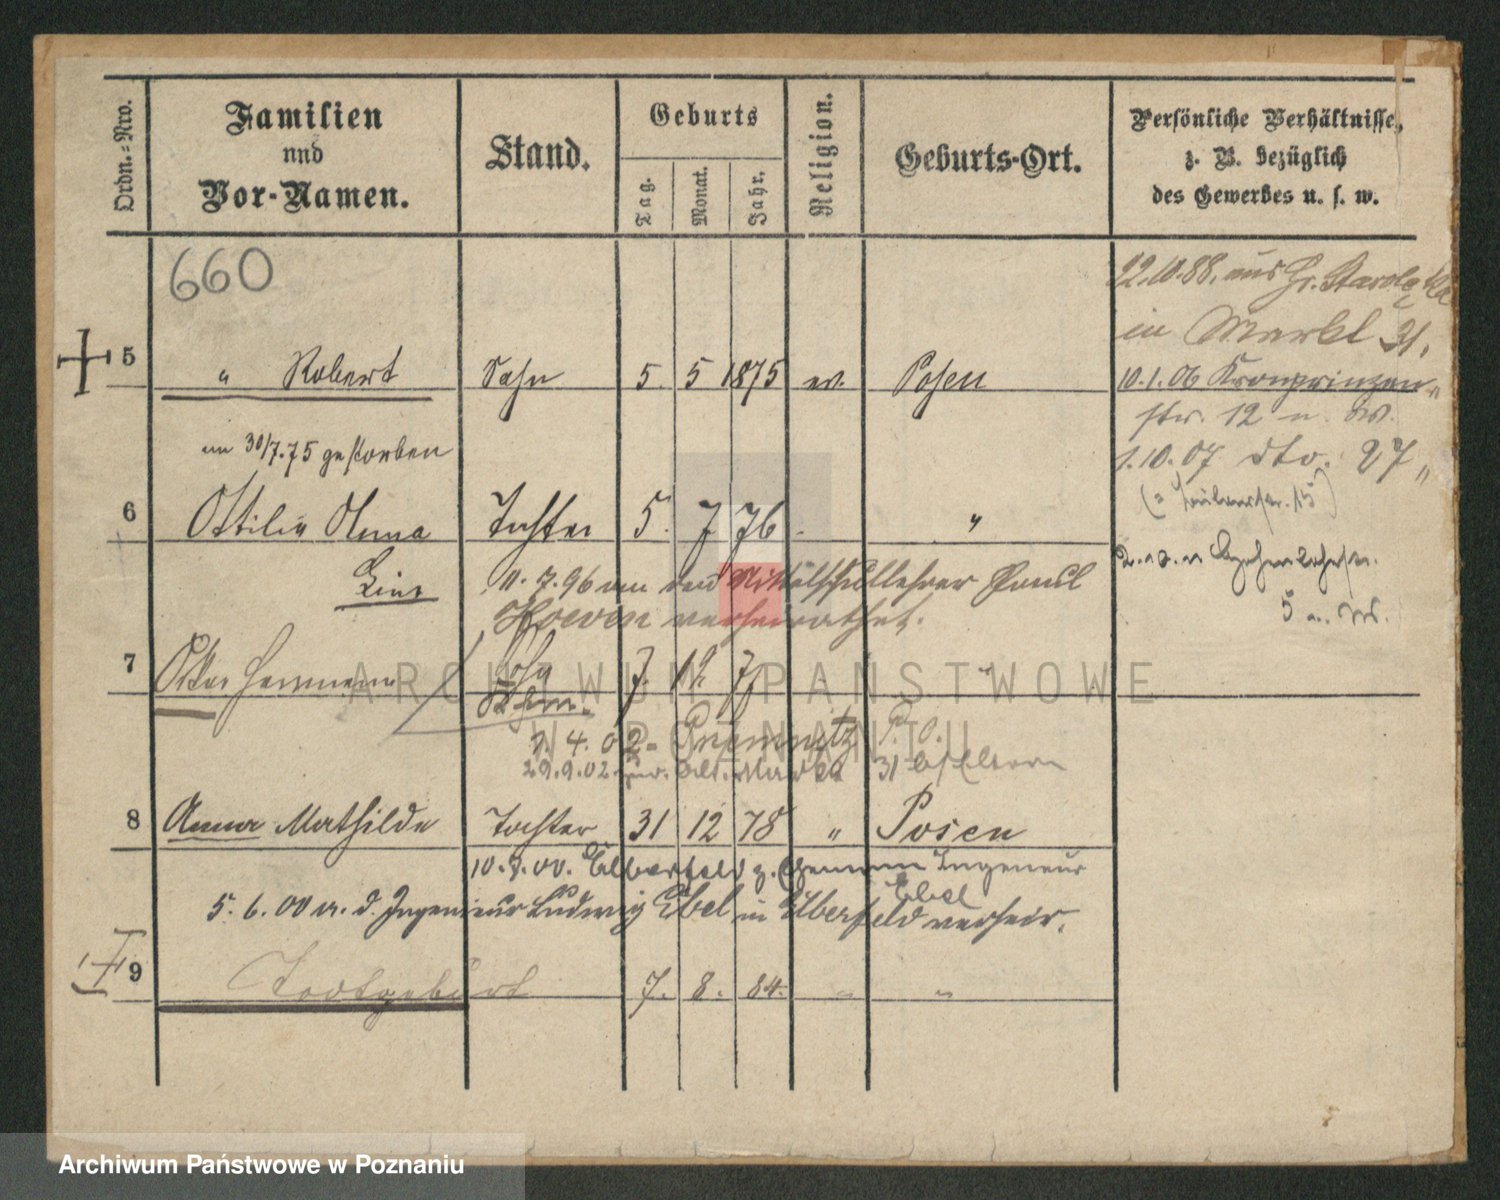 Ordn.-Nro.
Familien
und
Vor-Namen.
Stand.
Geburts
Tag.
Monat.
Jahr.
Religion.
Geburts-Ort.
Persönliche Verhältnisse,
z. B. bezüglich
des Gewerbes u. s. w.
660
22.10.88. aus Gr. Starolęka
in Markt 31.
5 " Robert Sohn 5. 5 1875 ev. Posen
10.1.06 Kronprinzen-
str. 12 u. W.
am 30/7.75 gestorben
1.10.07 dto. 27 "
6 Ottilie Anna Tochter 5. 7 76 "
5 u. W.
11.7.96 an den Mittelschullehrer Paul
Hoeven verheirathet.
7 Oskar Hermann Sohn 7. 12. 77 "
1.4.02
29.9.02 zur. Alt. Markt 31 b/Eltern
8 Anna Mathilde Tochter 31 12 78 " Posen
10.7.00. Elberfeld z. Ingenieur
Ebel
5.6.00 a. d. Ingenieur Ludwig Ebel in Elberfeld verheir.
9 Todtgeburt 7. 8. 84. " "
ARCHIWUM PAŃSTWOWE
W POZNANIU
Archiwum Państwowe w Poznaniu